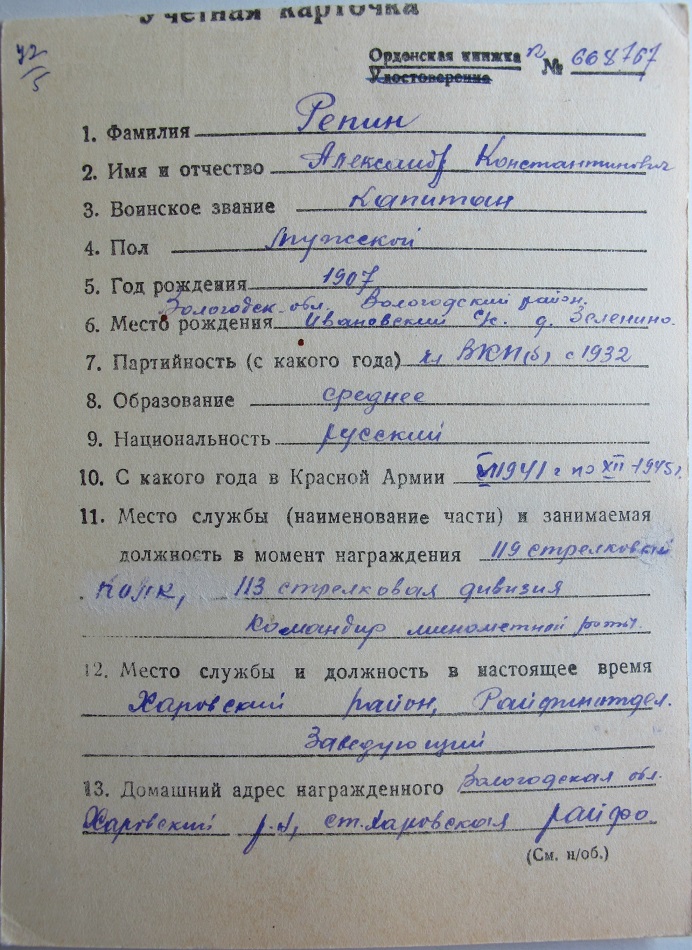 Учетная карточка
42/5
Орденская книжка п № 668767
Удостоверение
1. Фамилия Репин
2. Имя и отчество Александр Константинович
3. Воинское звание капитан
4. Пол Мужской
5. Год рождения 1907
Вологодск. обл. Вологодский район.
6. Место рождения Ивановский с/с. д. Зеленино.
7. Партийность (с какого года) чл ВКП(б) с 1932
8. Образование среднее
9. Национальность русский
10. С какого года в Красной Армии 1941 г по XII-1945г.
11. Место службы (наименование части) и занимаемая
должность в момент награждения 119 стрелковый
полк, 113 стрелковая дивизия
Командир минометной роты.
12. Место службы и должность в настоящее время
Харовский район, Райфинотдел.
Заведующий
13. Домашний адрес награжденного Вологодская обл.
Харовский р-н, ст. Харовская райфо
(См. н/об.)